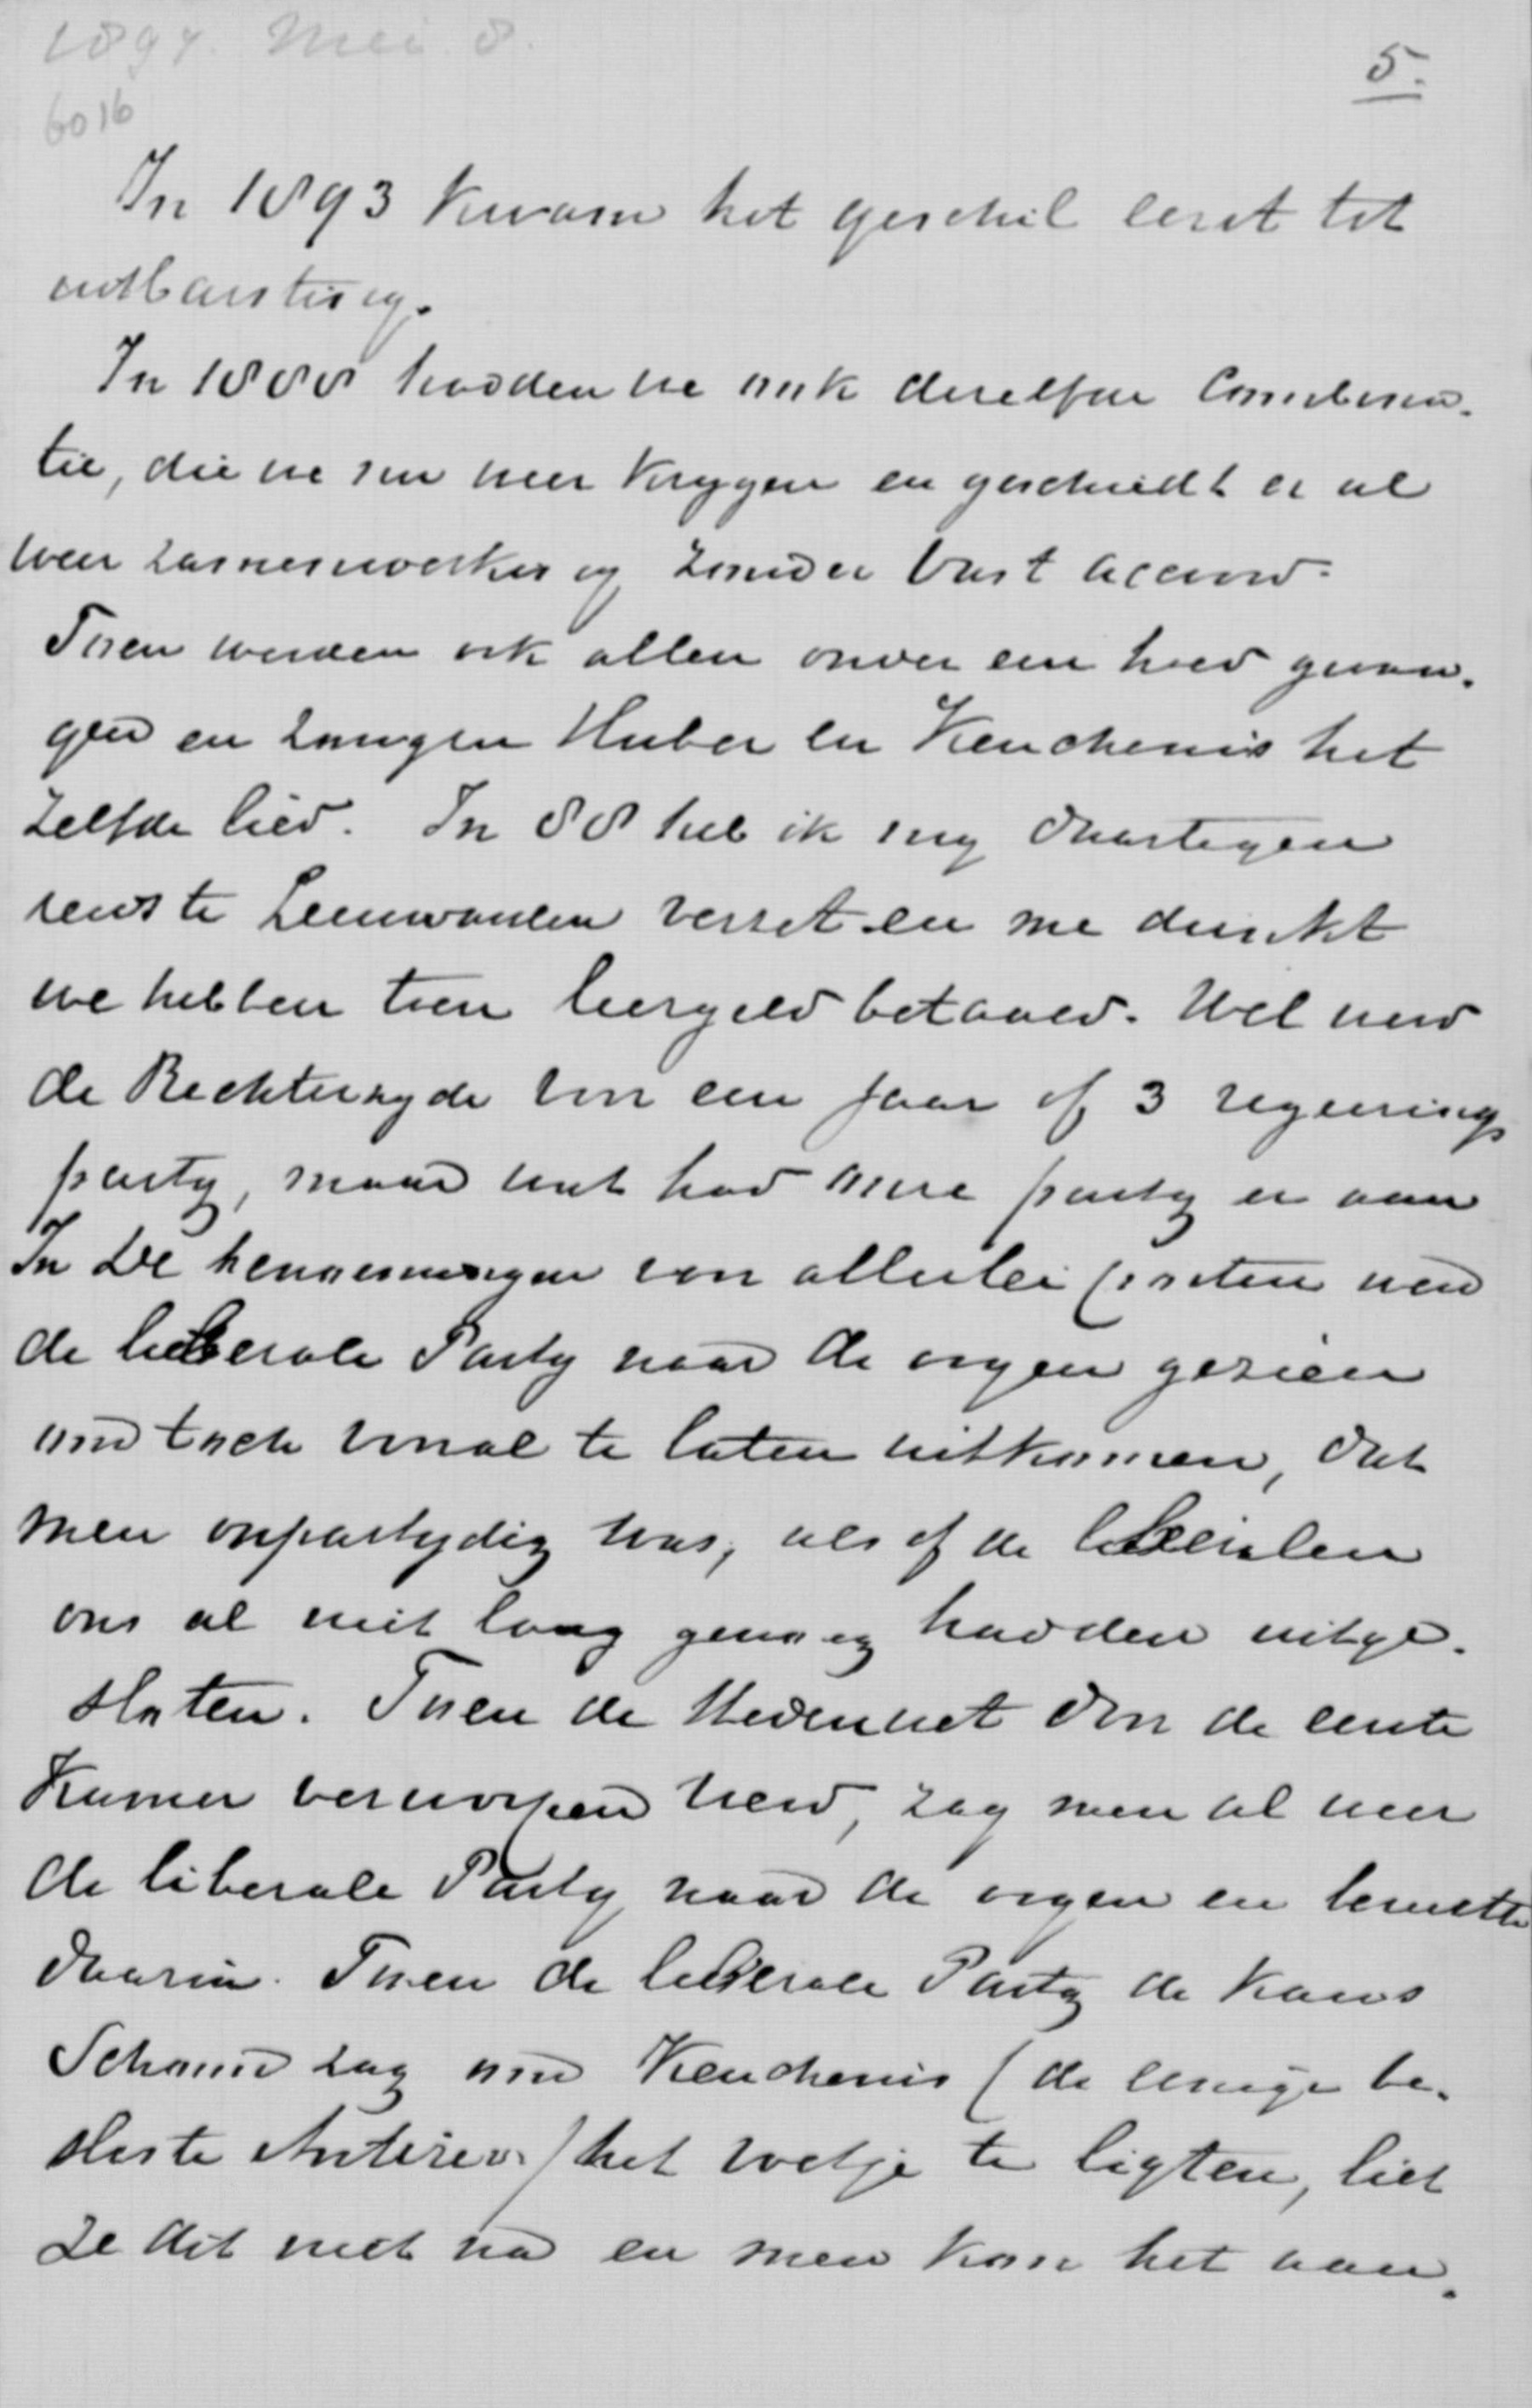 1897. Mei. 8.
5.
6016
In 1893 kwam het geschil eerst tot
uitbarsting.
In 1888 hadden we ook dezelfde Combina-
tie, die we nu weer krygen en geschiedt er al
weer samenwerking zonder vast accoord.
Toen werden ook allen onder een hoed gevan-
gen en zongen Huber en Keuchenis het
zelfde lied. In 88 heb ik my daartegen
reeds te Leeuwarden verzet en me dunkt
we hebben toen leergeld betaald. Wel werd
de Rechterzyde voor een jaar of 3 regerings
party, maar wat had onze party er aan
In de benoemingen van allerlei posten werd
de liberale Party naar de oogen gezien
om toch vooral te laten uitkomen, dat
men onpartydig was, als of de liberalen
ons al niet lang genoeg hadden uitge-
sloten. Toen de Stedenwet door de eerste
Kamer verworpen werd, zag men al weer
de liberale Party naar de oogen en berustte
daarin. Toen de liberale Party de kans
schoon zag om Keuchenis (de eenige be-
sliste Antirev.) het voetje te ligten, liet
ze dit niet na en men kon het aan-